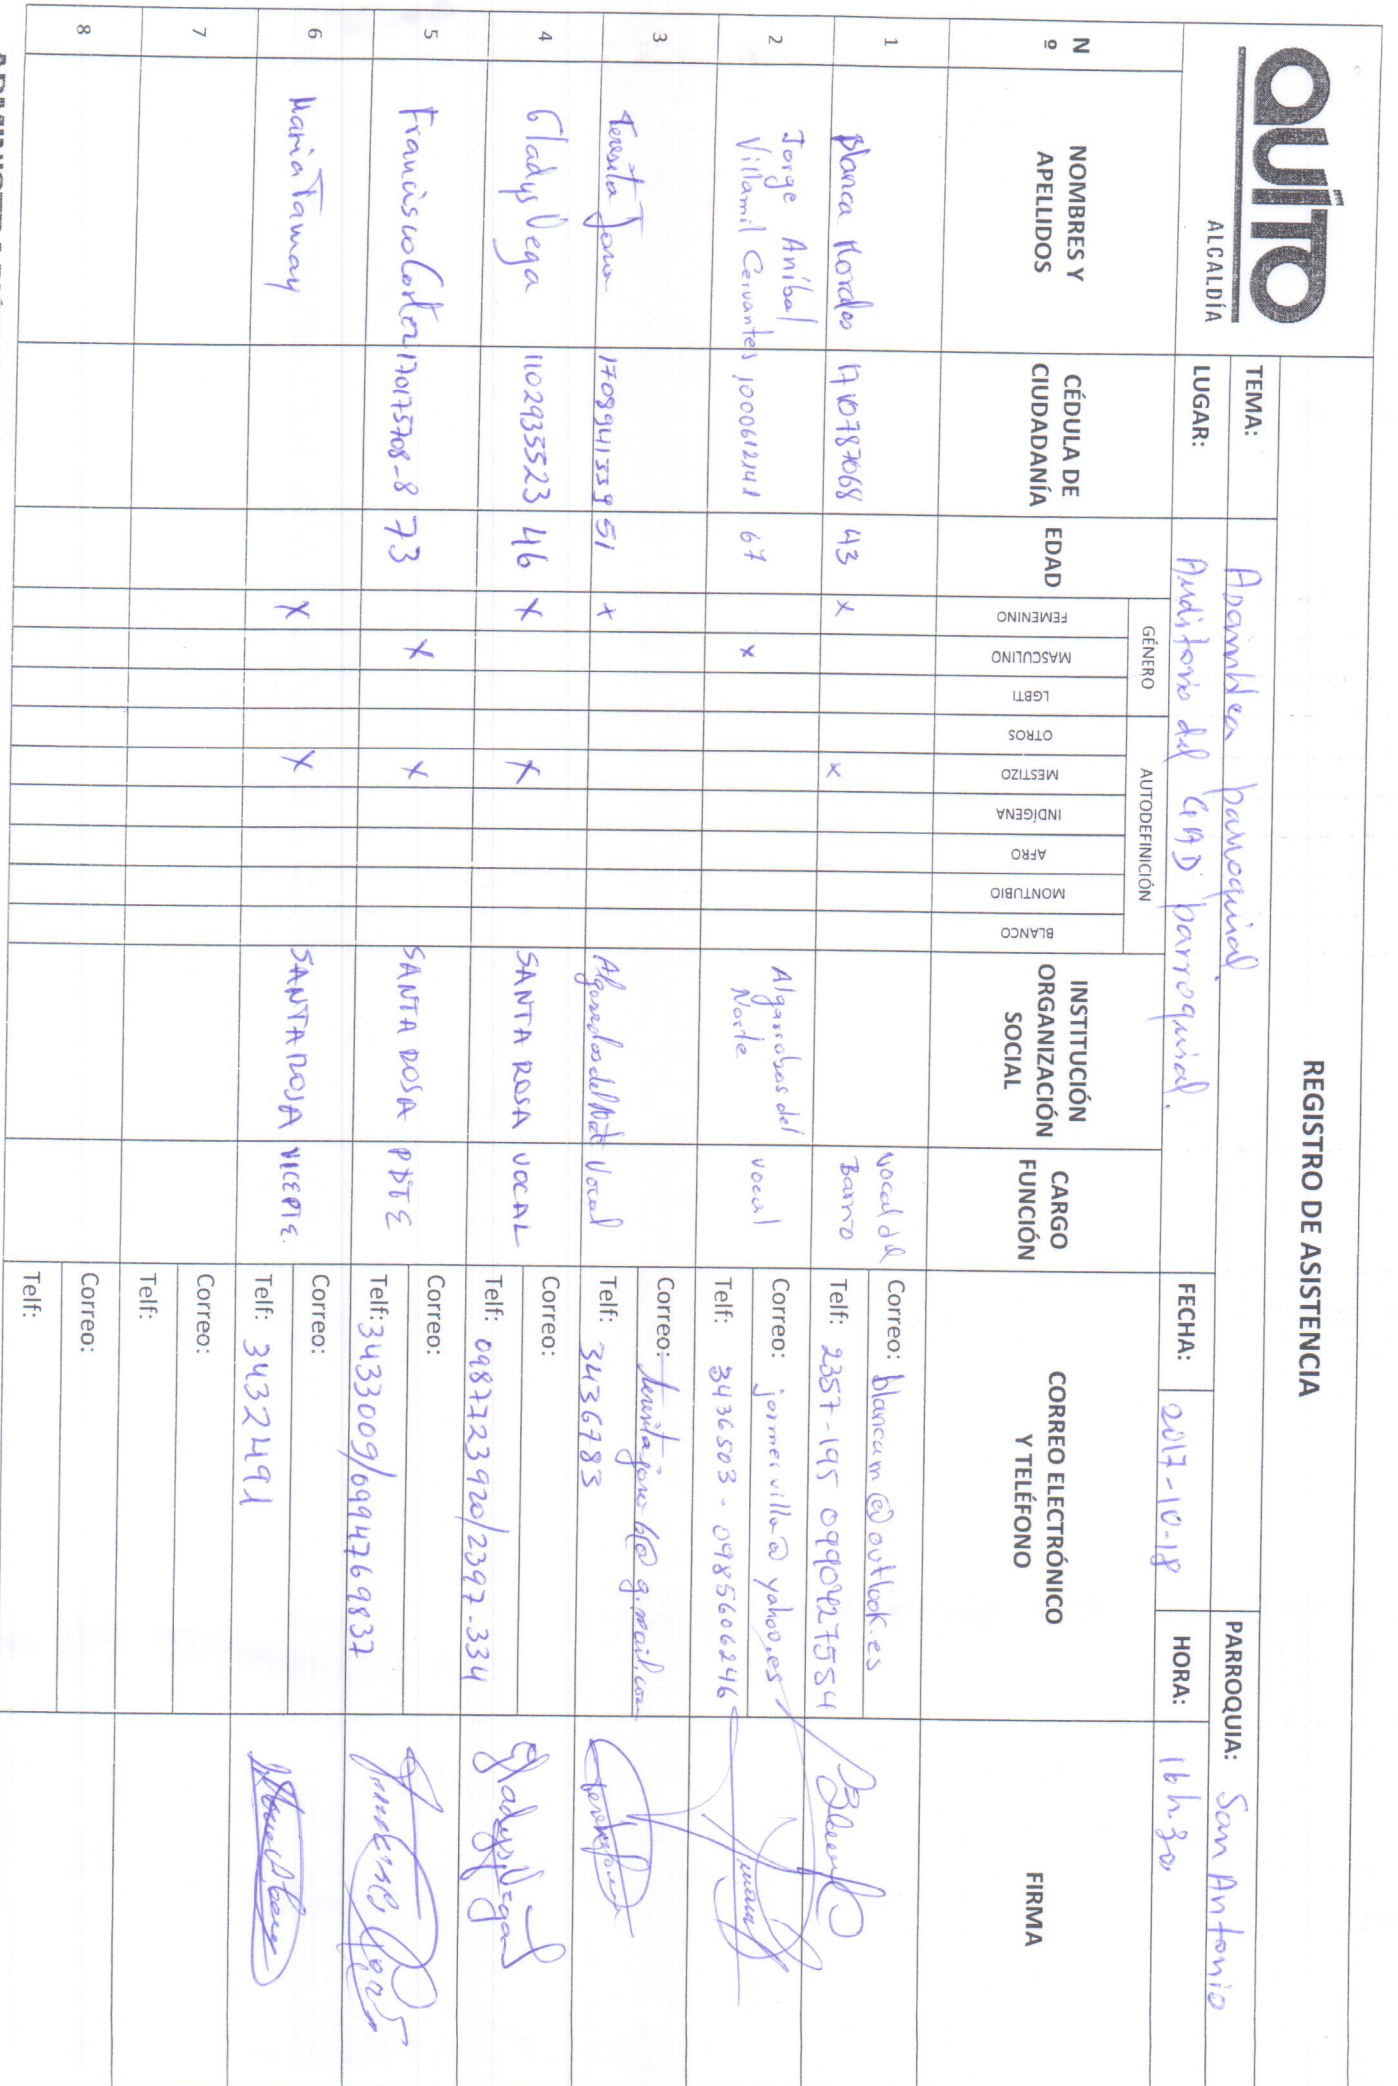 QUITO
ALCALDÍA
REGISTRO DE ASISTENCIA
TEMA: Asamblea parroquial
PARROQUIA: San Antonio
LUGAR: Auditorio del GAD parroquial.
FECHA: 2017-10-18
HORA: 16h.30
Nº
NOMBRES Y APELLIDOS
CÉDULA DE CIUDADANÍA
EDAD
GÉNERO
FEMENINO
MASCULINO
LGBTI
AUTODEFINICIÓN
OTROS
MESTIZO
INDÍGENA
AFRO
MONTUBIO
BLANCO
INSTITUCIÓN ORGANIZACIÓN SOCIAL
CARGO FUNCIÓN
CORREO ELECTRÓNICO Y TELÉFONO
FIRMA
1 Blanca Morales 1710787068 43 x x vocal del Barrio
Correo: blancam@outlook.es
Telf: 2357-195 0990427554
2 Jorge Aníbal Villamil Cervantes 1000612141 67 x Algarrobos del Norte vocal
Correo: jormervilla@yahoo.es
Telf: 3436503 - 0985606246
3 Teresita Jara 1708941339 51 x Vocal
Correo:
Telf: 3436783
4 Gladys Vega 1102935523 46 x x SANTA ROSA VOCAL
Correo:
Telf: 0987723920/2397-334
Gladys Vega
5 Francisco Cortez 170175708-8 73 x x SANTA ROSA PDTE
Correo:
Telf: 3433009/0994769837
6 Maria Tamay x x SANTA ROSA VICEPTE.
Correo:
Telf: 3432491
7
Correo:
Telf:
8
Correo:
Telf: